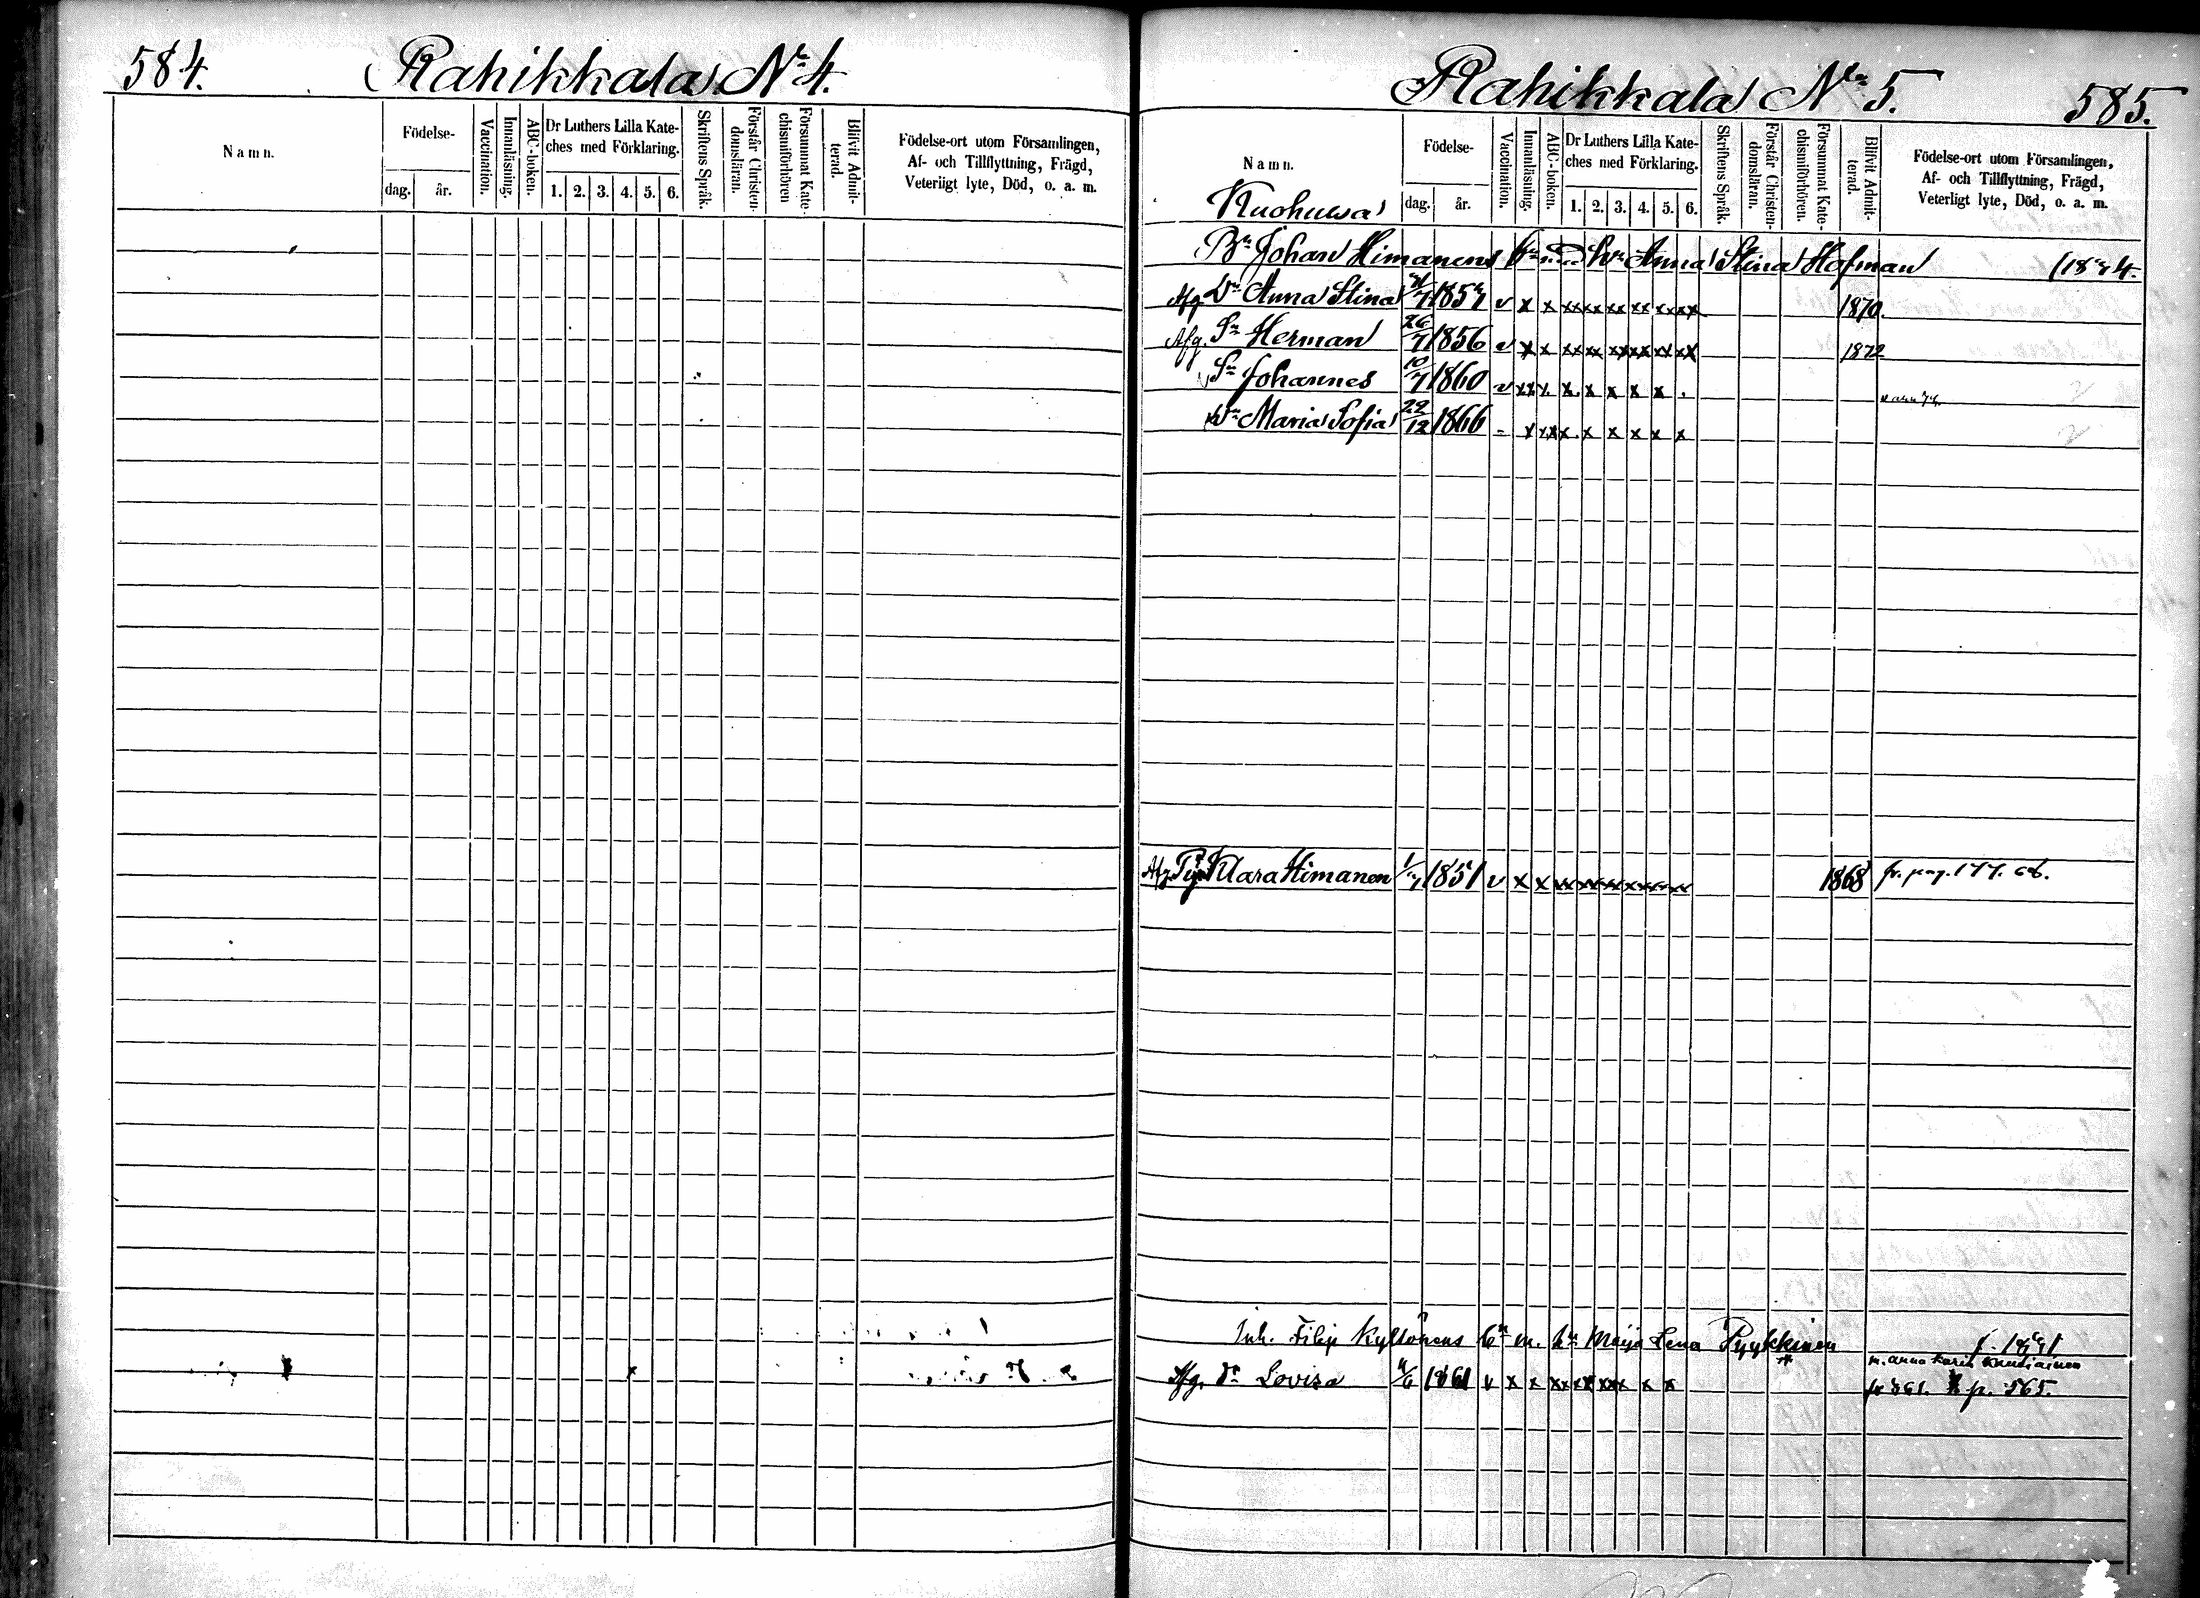 584. Rahikkala No 4.
Namn.
Födelse-
dag. år.
Vaccination.
Innanläsning.
ABC-boken.
Dr Luthers Lilla Kate-
ches med Förklaring.
1. 2. 3. 4. 5. 6.
Skriftens Språk.
Förstår Christen-
domsläran.
Försummat Kate-
chismiförhören
Blifvit Admit-
terad.
Födelse-ort utom Församlingen,
Af- och Tillflyttning, Frägd,
Veterligt lyte, Död, o. a. m.
Rahikkala No 5. 585.
Namn.
Kuohuwa
Födelse-
dag. år.
Vaccination.
Innanläsning.
ABC-boken.
Dr Luthers Lilla Kate-
ches med Förklaring.
1. 2. 3. 4. 5. 6.
Skriftens Språk.
Förstår Christen-
domsläran.
Försummat Kate-
chismiförhören.
Blifvit Admit-
terad.
Födelse-ort utom Församlingen,
Af- och Tillflyttning, Frägd,
Veterligt lyte, Död, o. a. m.
Bn Johan Himanens Anna Stina Hofman
Afg. Dr Anna Stina v x x xx xx xx xx xx xx 1870.
Afg. Sn Herman 26/7 1856 v x x xx xx xx xx xx xx 1872
Sn Johannes 10/7 1860 v xx x x x x x x .
Dr Maria Sofia 22/12 1866 - x xx x x x x x x
Afg. Klara Himanen 1851 v x x xx xx xx xx xx xx 1868 fr. pag. 177.
Inh. Filip Kyllönens m. Maija Lena Pyykkinen
m. Anna Karin
Afg. dr Lovisa 1861 v x x xx xx xx x x p. 565.